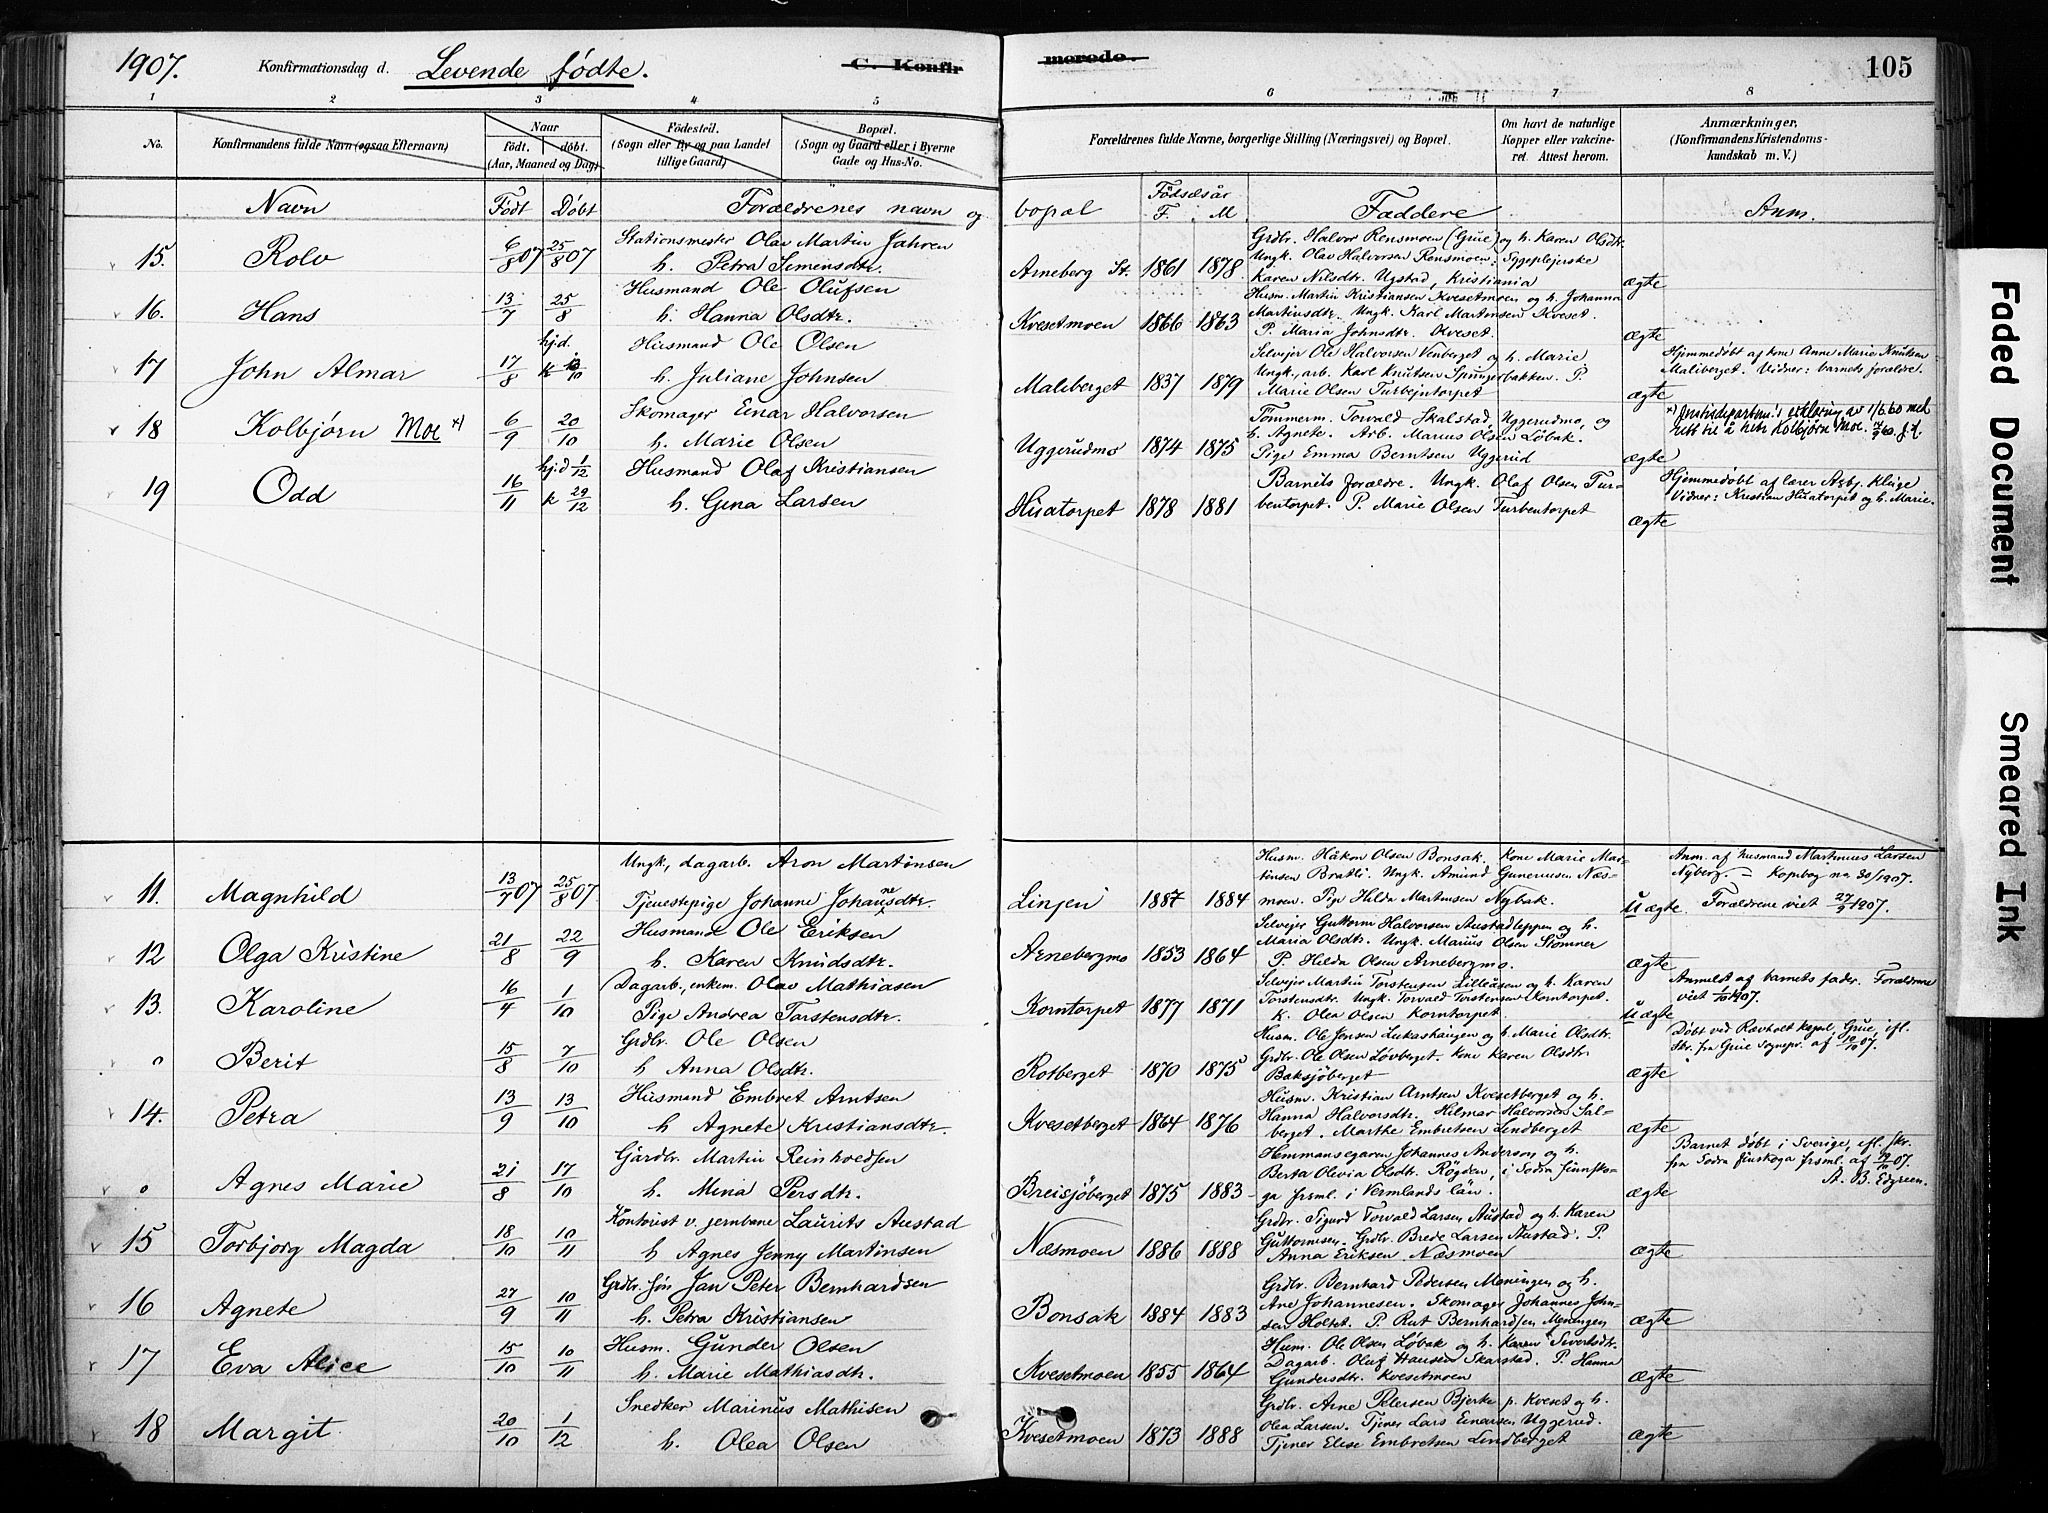 1907. Konfirmationsdag d. Levende fødte. C. Konfir merede. 105
1 2 3 4 5 6 7 8
No. Konfirmandens fulde Navn (ogsaa Efternavn) Naar født. døbt. (Aar, Maaned og Dag) Fødested. (Sogn eller By og paa Landet tillige Gaard) Bopæl. (Sogn og Gaard eller i Byerne Gade og Hus-No. Forældrenes fulde Navne, borgerlige Stilling (Næringsvei) og Bopæl. Om havt de naturlige Kopper eller vakcineret. Attest herom. Anmærkninger. (Konfirmandens Kristendomskundskab m. V.)
Navn Født Døbt Forældrenes navn og bopæl Fødselsår F. M Faddere Anm.
15. Rolv 6/8 07 25/8 07 Stationsmester Olav Martin Jahren
h. Petra Simensdtr. Arneberg St. 1861 1878 ægte
Grdbr. Halvor Rensmoen (Grue) og h. Karen Olsdtr.
Ungk. Olav Halvorsen Rensmoen. Sygeplejerske
Karen Nilsdtr. Ugstad, Kristiania
16. Hans 13/7 25/8 Husmand Ole Olufsen
h. Hanna Olsdtr. Kvesetmoen 1866 1863 ægte
Husm. Martin Kristiansen Kvesetmoen og h. Johanna
Martinsdtr. Ungk. Karl Martinsen Kveset.
P. Maria Johnsdtr. Kveset.
17 John Almar 17/8 hj.d. k 13/10 Husmand Ole Olsen
h. Juliane Johnsen Maliberget 1837 1879 ægte
Selvejer Ole Halvorsen Venberget og h. Marie
Ungk., arb. Karl Knutsen Spungerbakken. P.
Marie Olsen Turbejntorpet
Hjemmedøbt af kone Anne Marie Knutsen
Maliberget. Vidner: barnets forældre.
18 Kolbjørn Moe x) 6/9 20/10 Skomager Einar Halvorsen
h. Marie Olsen Uggerudmo 1874 1875 ægte
Tømmerm. Torvald Skalstad, Uggerudmo, og
h. Agnete. Arb. Marius Olsen Løbak.
Pige Emma Berntsen Uggerud
x) Justisdepartem.s erklæring av 1/6 60 med
rett til å hete Kolbjørn Moe.
19 Odd 16/11 hj.d 1/12 k 29/12 Husmand Olaf Kristiansen
h. Gina Larsen Husatorpet 1878 1881 ægte
Barnets forældre. Ungk. Olaf Olsen Tur-
bentorpet. P. Marie Olsen Turbentorpet
Hjemmedøbt af lærer Asbj. Kluge
Vidner: Kristian Husatorpet og h. Marie.
11. Magnhild 13/7 07 25/8 07 Ungk., dagarb. Aron Martinsen
Tjenestepige Johanne Johansdtr. Linjen 1887 1884 uægte.
Husm. Håkon Olsen Bonsak. Kone Marie Mar-
tinsen Bratli. Ungk. Amund Gunerius sen Næs-
moen. Pige Hilda Martinsen Nybak.
Anm. af husmand Martinus Larsen
Nyberg. = Kopibog no 30/1907.
Forældrene viet 27/9 1907.
12 Olga Kristine 21/8 22/9 Husmand Ole Eriksen
h. Karen Knudsdtr. Arnebergmo 1853 1864 ægte
Selvejer Guttorm Halvorsen Austadleppen og h.
Maria Olsdtr. Ungk. Marius Olsen Stømner
P. Hilda Olsen Arnebergmo.
13. Karoline 16/4 1/10 Dagarb., enkem. Olav Mathiasen
Pige Andrea Torstensdtr. Korntorpet 1877 1871 uægte
Selvejer Martin Torstensen Lilleåsen og h. Karen
Torstensdtr. Ungk. Torvald Torstensen Korntorpet.
K. Olea Olsen Korntorpet.
Anmeldt af barnets fader. Forældrene
viet 1/10 1907.
o Berit 15/8 7/10 Grdbr. Ole Olsen
h Anna Olsdtr. Rotberget 1870 1875 ægte
Husm. Ole Jensen Lukashaugen og h. Marie Olsdtr.
Grdbr. Ole Olsen Løvberget. Kone Karen Olsdtr.
Baksjøberget
Døbt ved Rævholt kapel, Grue, ifl.
Skr. fra Grue sognepr. af 10/10 07.
14. Petra 13/9 13/10 Husmand Embret Arntsen
h Agnete Kristiansdtr. Kvesetberget 1864 1876 ægte
Husm. Kristian Arntsen Kvesetberget og h.
Hanna Halvorsdtr. Hilmar Halvorsen Sal-
berget. Marthe Embretsen Lindberget
o Agnes Marie 21/8 17/10 Gårdbr. Martin Reinholdsen
h. Mina Persdtr. Breisjøberget 1875 1883 ægte
Hemmansegaren Johannes Anderson og h.
Berta Olivia Olsdtr. Rögden, i Södra Finnsko-
ga frsml. i Vermlands län.
Barnet døbt i Sverige, ifl. skr.
fra Södra Finskoga frsml. af 07.
A. B. Edgreen.
15 Torbjørg Magda 18/10 10/11 Kontorist v. jernbane Laurits Austad
h Agnes Jenny Martinsen Næsmoen 1886 1888 ægte
Grdbr. Sigurd Torvald Larsen Austad og h. Karen
Guttormsen. Grdbr. Brede Larsen Austad. P.
Anna Eriksen Næsmoen
16 Agnete 27/9 10/11 Grdbr. søn Jan Peter Bernhardsen
h. Petra Kristiansen Bonsak 1884 1883 ægte
Grdbr. Bernhard Pedersen Meningen og h.
Ane Johannesen. Skomager Johannes John-
sen Holtet. P. Rut Bernhardsen Meningen
17 Eva Alice 15/10 10/11 Husm. Gunder Olsen
h. Marie Mathiasdtr. Kvesetmoen 1855 1864 ægte
Husm. Ole Olsen Løbak og h. Karen Sivertsdtr.
Dagarb. Oluf Hansen Skarstad. P. Hanna
Gundersdtr. Kvesetmoen
18 Margit 20/10 1/12 Snedker Marinus Mathisen
h. Olea Olsen Kvesetmoen 1873 1888 ægte
Grdbr. Arne Petersen Bjerke p. Kveset og h.
Olea Larsen. Tjener Lars Einarsen Uggerud.
Tjener Elise Embretsen Lindberget
Faded Document
Smeared Ink